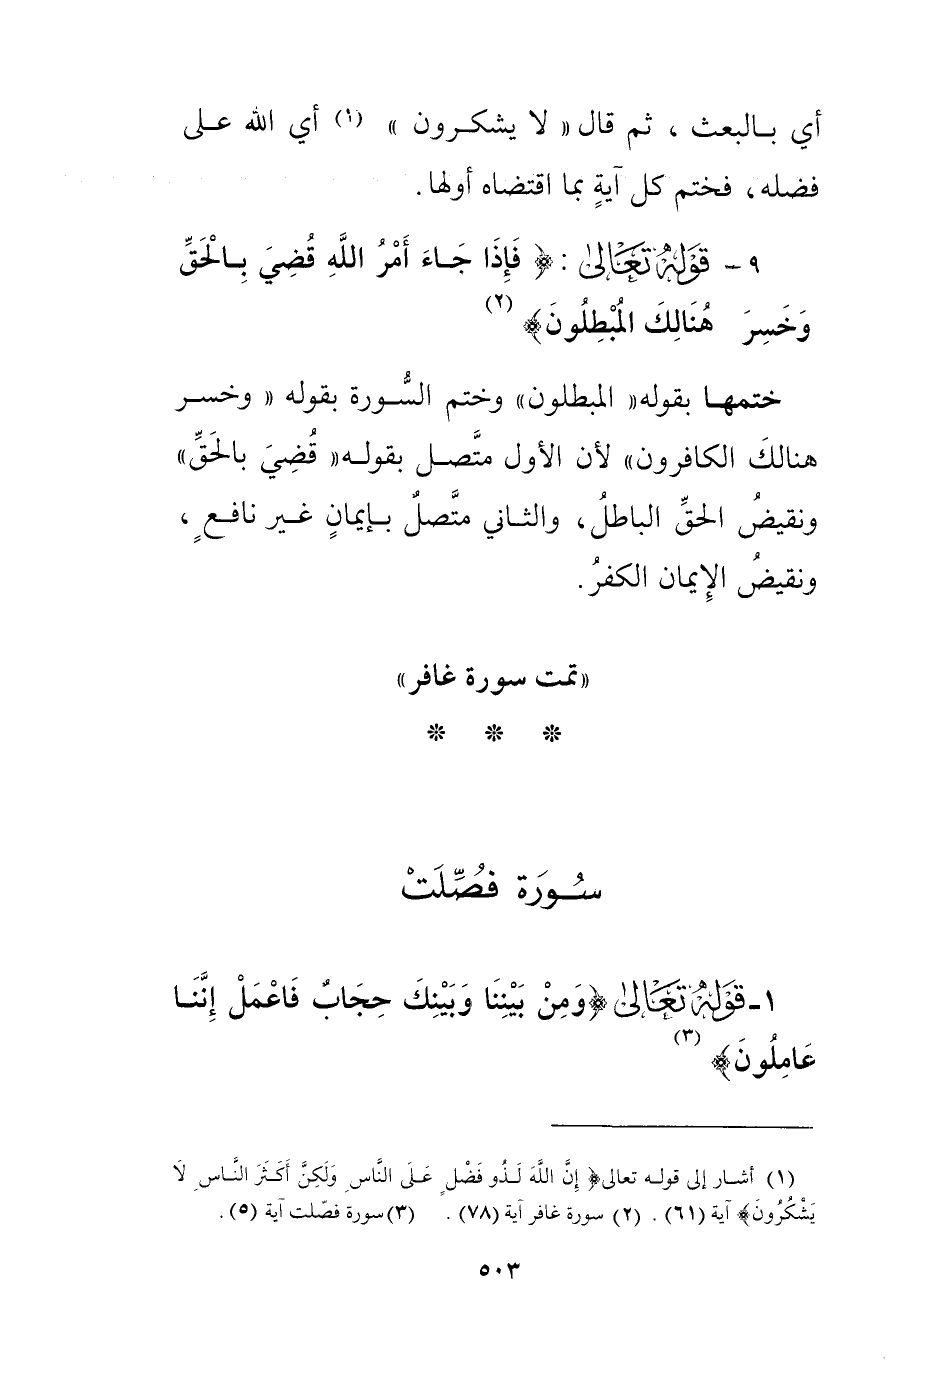 أي بالبعث ، ثم قال « لا يشكرون » (١) أي الله على
فضله، فختم كل آيةٍ بما اقتضاه أولها.
٩ - قَوْلُهُ تَعَالَىٰ : ﴿ فَإِذَا جَاءَ أَمْرُ اللَّهِ قُضِيَ بِالْحَقِّ
وَخَسِرَ هُنَالِكَ الْمُبْطِلُونَ﴾ (٢)
ختمها بقوله« المبطلون» وختم السُّورة بقوله « وخسر
هنالكَ الكافرون» لأن الأول متَّصل بقوله« قُضِيَ بالحَقِّ»
ونقيضُ الحقِّ الباطلُ، والثاني متَّصلٌ بإيمانٍ غير نافعٍ ،
ونقيضُ الإِيمان الكفرُ.
«تمت سورة غافر»
* * *
سُورَة فُصِّلَتْ
١ـ قَوْلُهُ تَعَالَىٰ ﴿وَمِنْ بَيْنِنَا وَبَيْنِكَ حِجَابٌ فَاعْمَلْ إِنَّنَا
عَامِلُونَ﴾ (٣)
(١) أشار إلى قوله تعالى﴿ إِنَّ اللَّهَ لَذُو فَضْلٍ عَلَى النَّاسِ وَلَكِنَّ أَكَثَرَ النَّاسِ لَا
يَشْكُرُونَ﴾ آية (٦١) . (٢) سورة غافر آية (٧٨) . (٣)سورة فصّلت آية (٥) .
٥٠٣